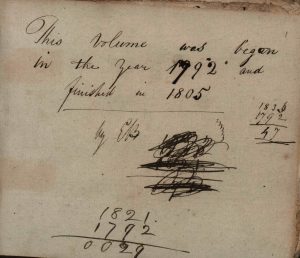 This volume was began
in the year 1792 and
finished in 1805
1792
47
by
1821
1792
0029